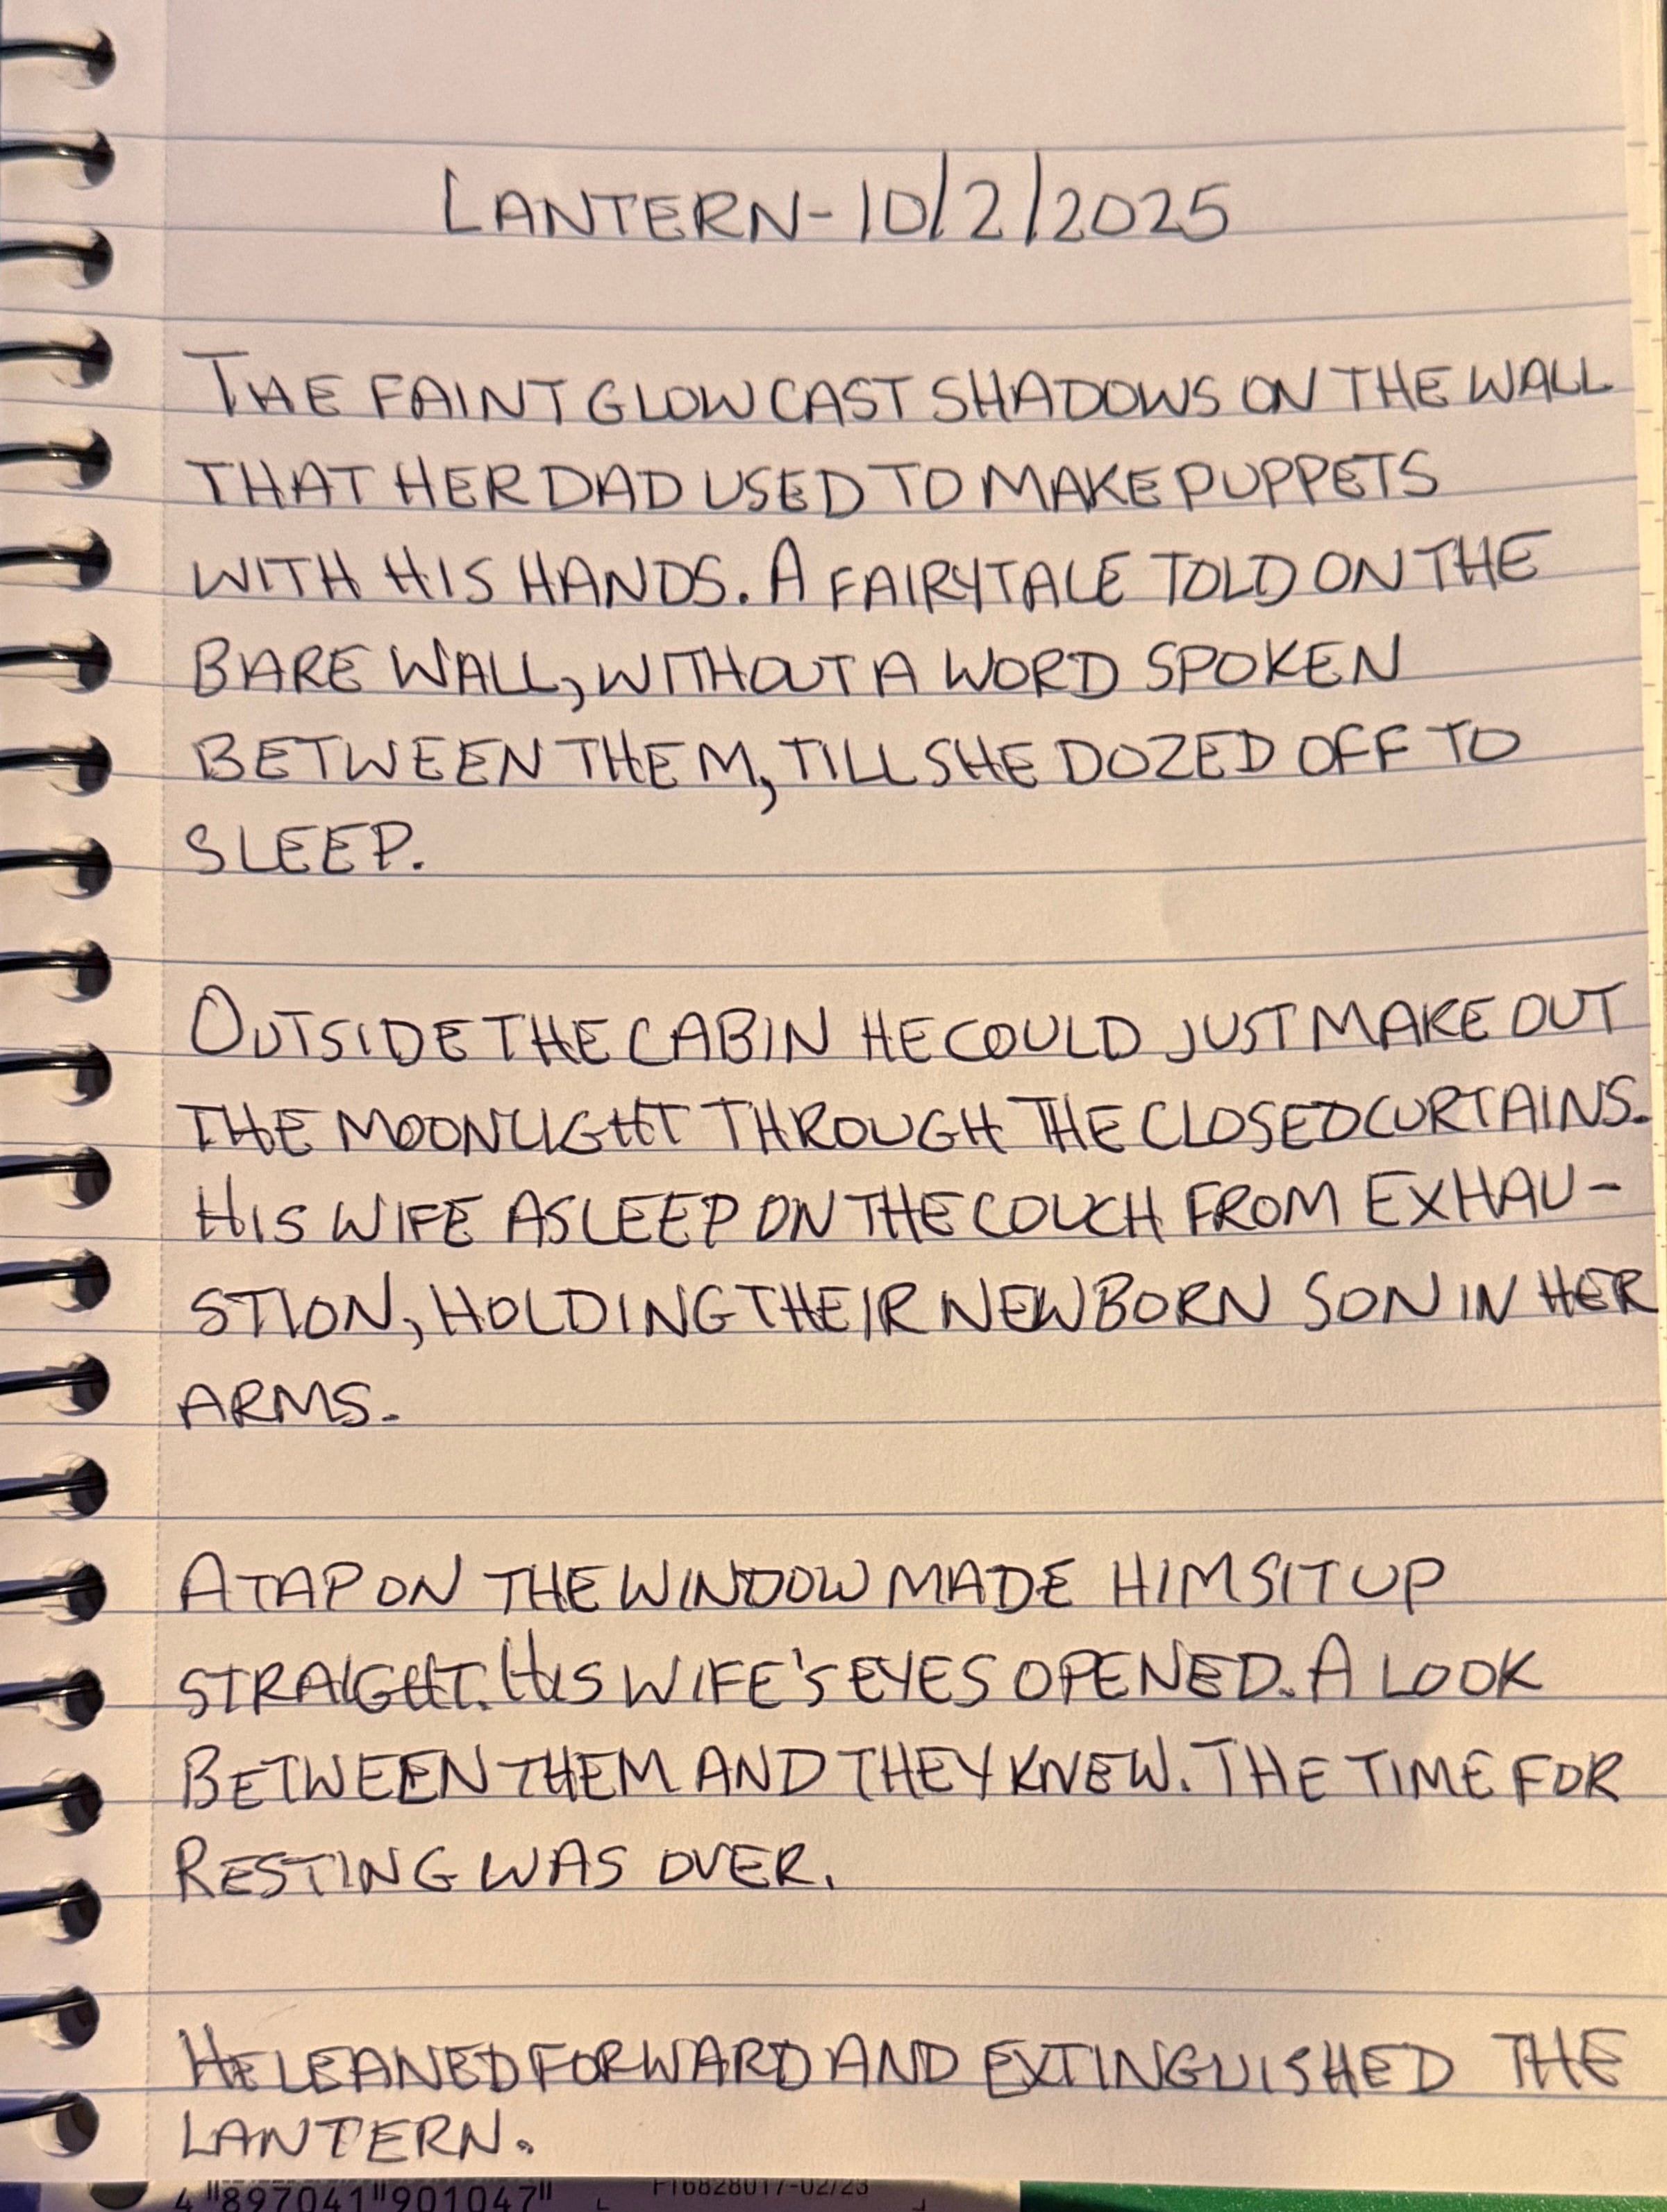 LANTERN-10/2/2025
THE FAINT GLOW CAST SHADOWS ON THE WALL
THAT HER DAD USED TO MAKE PUPPETS
WITH HIS HANDS. A FAIRYTALE TOLD ON THE
BARE WALL, WITHOUT A WORD SPOKEN
BETWEEN THEM, TILL SHE DOZED OFF TO
SLEEP.
OUTSIDE THE CABIN HE COULD JUST MAKE OUT
THE MOONLIGHT THROUGH THE CLOSED CURTAINS.
HIS WIFE ASLEEP ON THE COUCH FROM EXHAU-
STION, HOLDING THEIR NEWBORN SON IN HER
ARMS.
A TAP ON THE WINDOW MADE HIM SIT UP
STRAIGHT. HIS WIFE'S EYES OPENED. A LOOK
BETWEEN THEM AND THEY KNEW. THE TIME FOR
RESTING WAS OVER.
HE LEANED FORWARD AND EXTINGUISHED THE
LANTERN.
4 897041 901047
F16828017-02/23